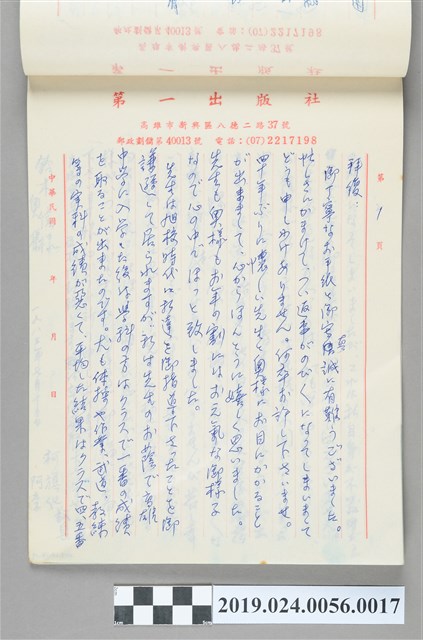 第一出版社
高雄市新興區八德二路37號
郵政劃儲第40013號 電話：(07)2217198
第 1 頁
拝復：
御丁寧なお手紙と御写真誠に有難うございました。
忙しさにかまけて、つい返事がのびのびになってしまいまして
どうも申しわけありません。何卒お許し下さいませ。
四十年ぶりに懐しい先生と奥様にお目にかかること
が出来まして、心からほんとうに嬉しく思いました。
先生も奥様もお年の割にはお元気な御様子
なので心の中でほっと致しました。
先生は旭校時代に私達を御指導下さったことを御
謙遜して居られますが、私は先生のお蔭で高雄
中学に入学した後は学科の方はクラスで一番の成績
を取ることが出来たのです。尤も体操や作業、武道、教練
等の実科の成績が悪くて平均した結果はクラスで四五番
中華民國 年 月 日
2019.024.0056.0017